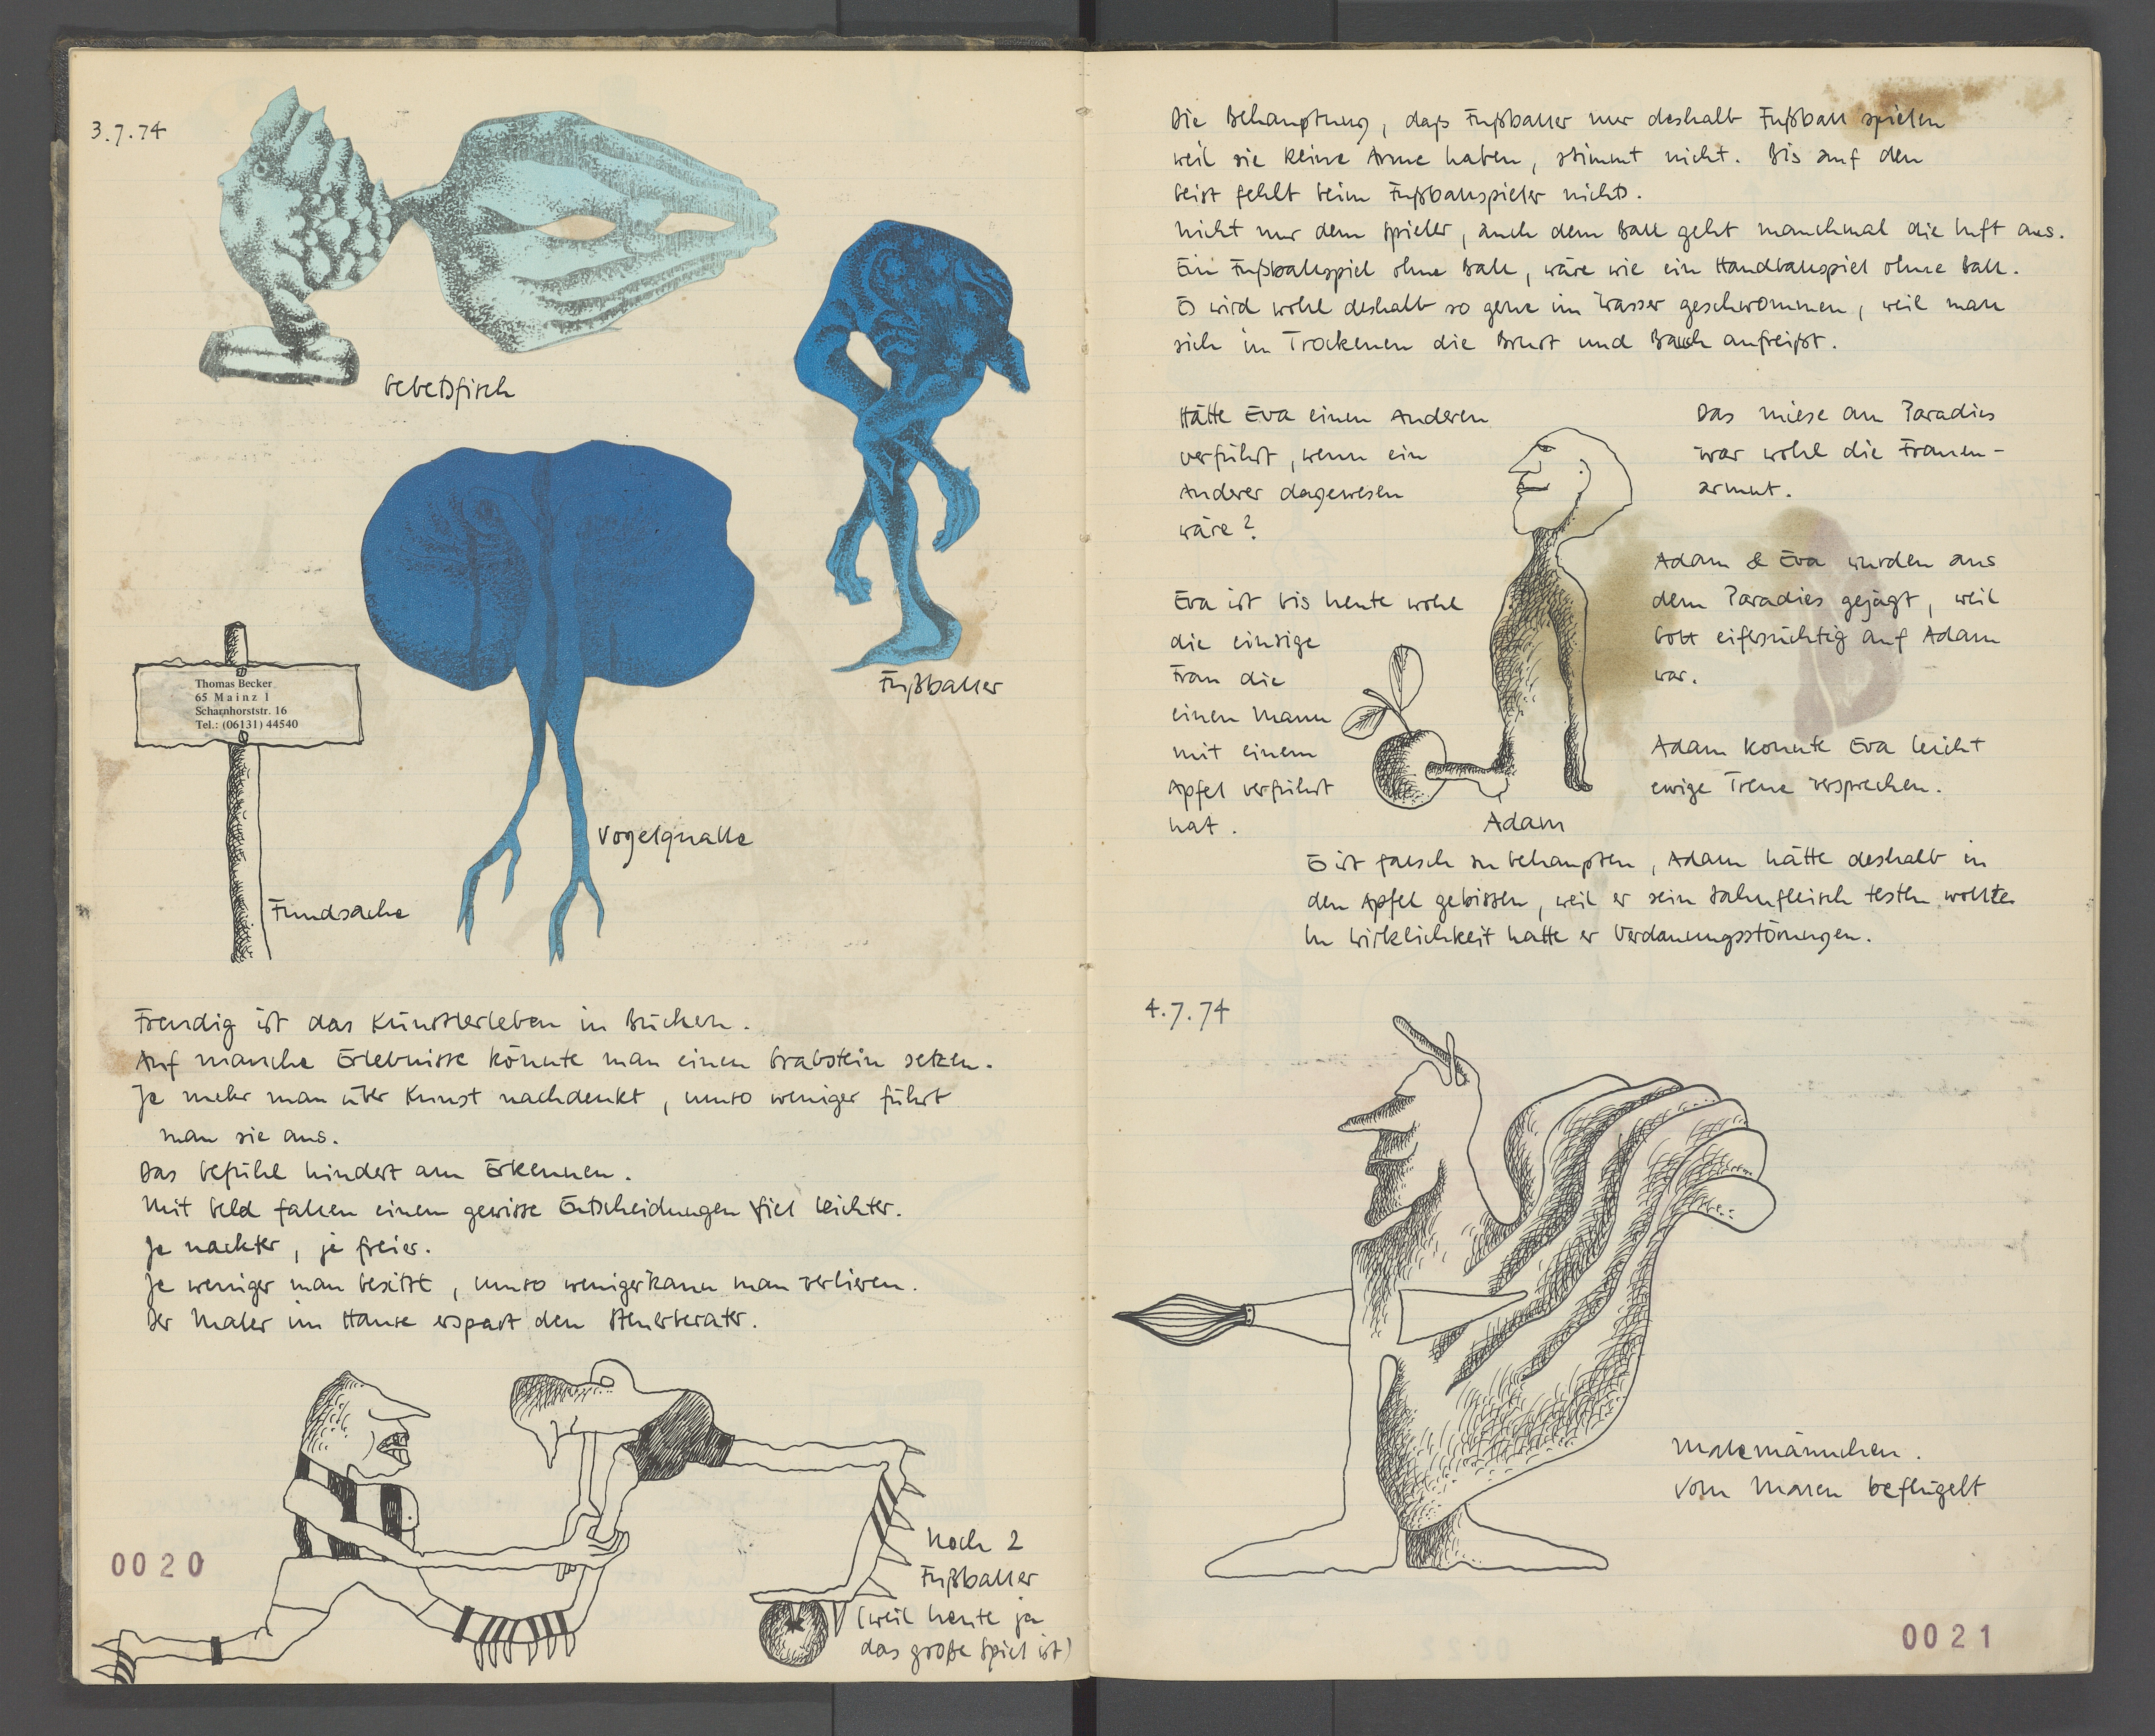 3.7.74
Gebetsfisch
Fußballer
Thomas Becker
65 Mainz 1
Scharnhorststr. 16
Tel.: (06131) 44540
Vogelqualle
Fundsache
Freudig ist das Künstlerleben in Büchern.
Auf manche Erlebnisse könnte man einen Grabstein setzen.
Je mehr man über Kunst nachdenkt, umso weniger führt
man sie aus.
Das Gefühl hindert am Erkennen.
Mit Geld fallen einem gewisse Entscheidungen viel leichter.
Je nackter, je freier.
Je weniger man besitzt, umso weniger kann man verlieren.
Der Maler im Hause erspart den Steuerberater.
Noch 2
Fußballer
(weil heute ja
das große Spiel ist)
0020
Die Behauptung, daß Fußballer nur deshalb Fußball spielen
weil sie keine Arme haben, stimmt nicht. Bis auf den
Geist fehlt beim Fußballspieler nichts.
Nicht nur dem Spieler, auch dem Ball geht manchmal die Luft aus.
Ein Fußballspiel ohne Ball, wäre wie ein Handballspiel ohne Ball.
Es wird wohl deshalb so gerne im Wasser geschwommen, weil man
sich im Trockenen die Brust und Bauch aufreißt.
Hätte Eva einen Anderen
verführt, wenn ein
Anderer dagewesen
wäre?
Das miese am Paradies
war wohl die Frauen-
armut.
Eva ist bis heute wohl
die einzige
Frau die
einen Mann
mit einem
Apfel verführt
hat.
Adam & Eva wurden aus
dem Paradies gejagt, weil
Gott eifersüchtig auf Adam
war.
Adam konnte Eva leicht
ewige Treue versprechen.
Adam
Es ist falsch zu behaupten, Adam hätte deshalb in
den Apfel gebissen, weil er sein Zahnfleisch testen wollte.
In Wirklichkeit hatte er Verdauungsstörungen.
4.7.74
Malemännchen.
Vom Malen beflügelt
0021